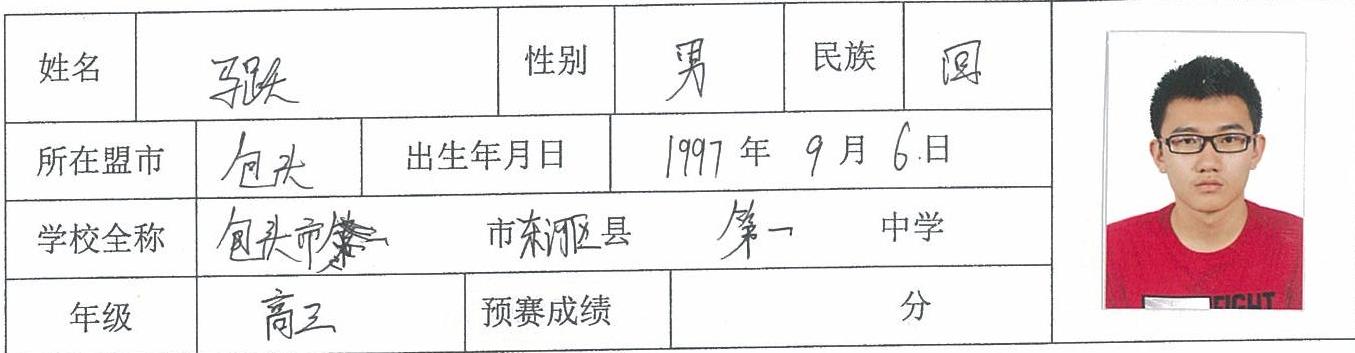 姓名 马跃 性别 男 民族 回
所在盟市 包头 出生年月日 1997年 9月 6日
学校全称 包头市 市东河区县 第一 中学
年级 高三 预赛成绩 分
FIGHT